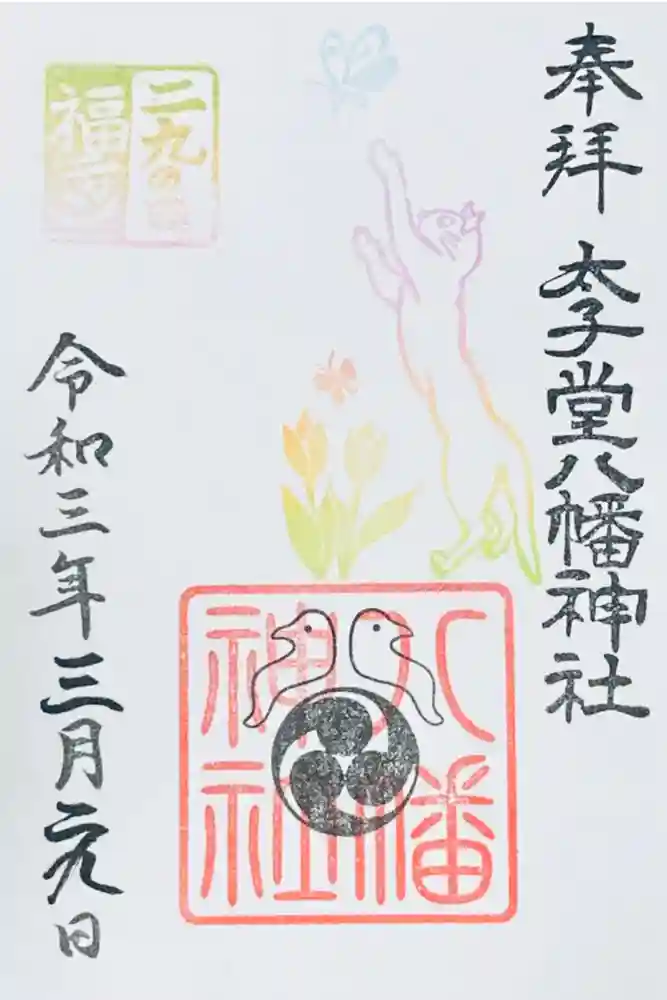 奉拝 太子堂八幡神社
八幡
神社
二九の日
福
令和三年三月二九日